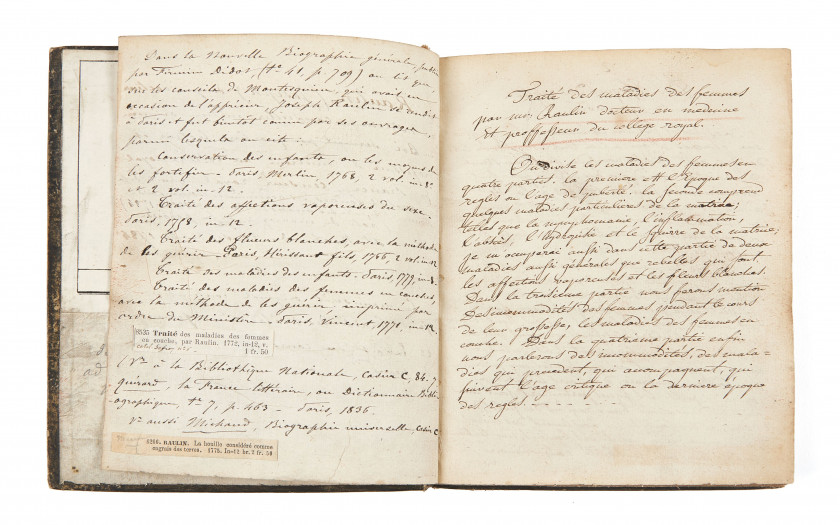 Dans la Nouvelle Biographie générale, publiée
par Firmin Didot, (te 41, p. 709) on lit que
sur les conseils de Montesquieu, qui avait eu
occasion de l'apprécier, Joseph Raulin se rendit
à Paris et fut bientôt connu par ses ouvrages,
parmi lesquels on cite:
Conservation des enfants, ou les moyens de
les fortifier. Paris, Merlin, 1768, 2 vol. in-8°
et 2 vol. in-12.
Traité des affections vaporeuses du sexe.
Paris, 1758, in-12.
Traité des flueurs blanches, avec la méthode
de les guérir. Paris, Hérissant fils, 1766, 2 vol. in-12
Traité des maladies des enfants. Paris, 1779, in-8.
Traité des maladies des femmes en couches,
avec la méthode de les guérir, imprimé par
ordre du Ministère. Paris, Vincent, 1771, in-12.
8525 Traité des maladies des femmes
en couche, par Raulin. 1772, in-12, v.
1 fr. 50
(Vr à la Bibliothèque Nationale, Casier C, 84. 7
Quérard, la France littéraire, ou Dictionnaire Bibli-
ographique, te 7, p. 463. Paris, 1835.
Vr aussi Michaud, Biographie universelle, Casier C
6266. RAULIN. La houille considéré comme
engrais des terres. 1775. In-12 br. 2 fr. 50
Traité des maladies des femmes
par mr. Raulin docteur en medecine
et proffesseur du college royal.
On divise les maladies des femmes en
quatre parties. la premiere est l'Epoque des
regles ou l'age de puberté. la seconde comprend
quelques maladies particulieres de la matrice;
telles que la nymphomanie, l'inflammation,
l'abcès, l'hydropisie et le squirre de la matrice;
je m'occuperai aussi dans cette partie de deux
maladies aussi générales que rebelles qui sont
les affections vaporeuses et les fleurs blanches.
Dans la troisieme partie nous ferons mention
Des incommodités des femmes pendant le cours
de leur grossesse, les maladies des femmes en
couche. Dans la quatrieme partie enfin
nous parlerons des incommodités, des mala-
dies qui precedent, qui accompagnent, qui
suivent l'age critique ou la derniere epoque
des regles.